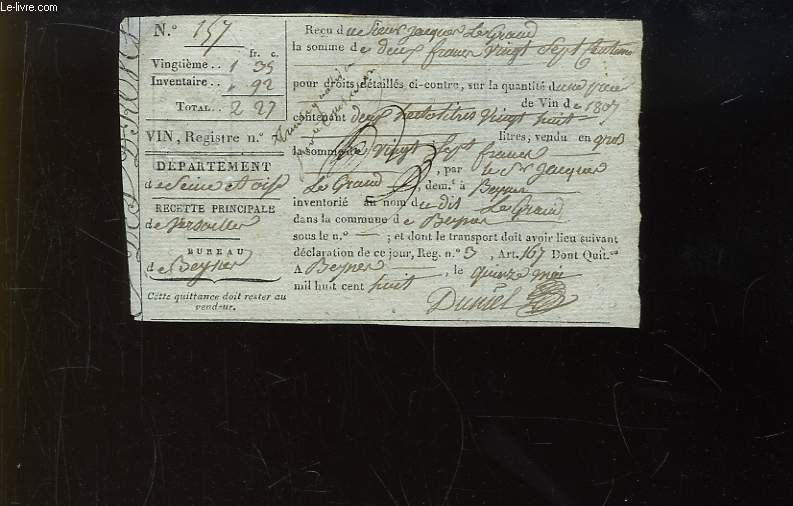 Le-livre.com
N.º 157
fr. c.
Vingtième.. 1 35
Inventaire.. " 92
TOTAL.. 2 27
VIN, Registre n.º
DÉPARTEMENT
de Seine et oise
RECETTE PRINCIPALE
de Versailles
BUREAU
de Beynes
Cette quittance doit rester au
vendeur.
Reçu de Sieur Jacques Le Grand
la somme de deux francs vingt Sept Centimes
pour droits détaillés ci-contre, sur la quantité d'une
de Vin de 1807
contenant deux hectolitres vingt huit
litres, vendu en gros
la somme de vingt Sept francs
, par le Sr Jacques
Le Grand , dem.t à Beynes
inventorié au nom de dit Le Grand
dans la commune de Beynes
sous le n.º — ; et dont le transport doit avoir lieu suivant
déclaration de ce jour, Reg. n.º 3 , Art. 167 Dont Quit.ce
A Beynes , le quinze mai
mil huit cent huit